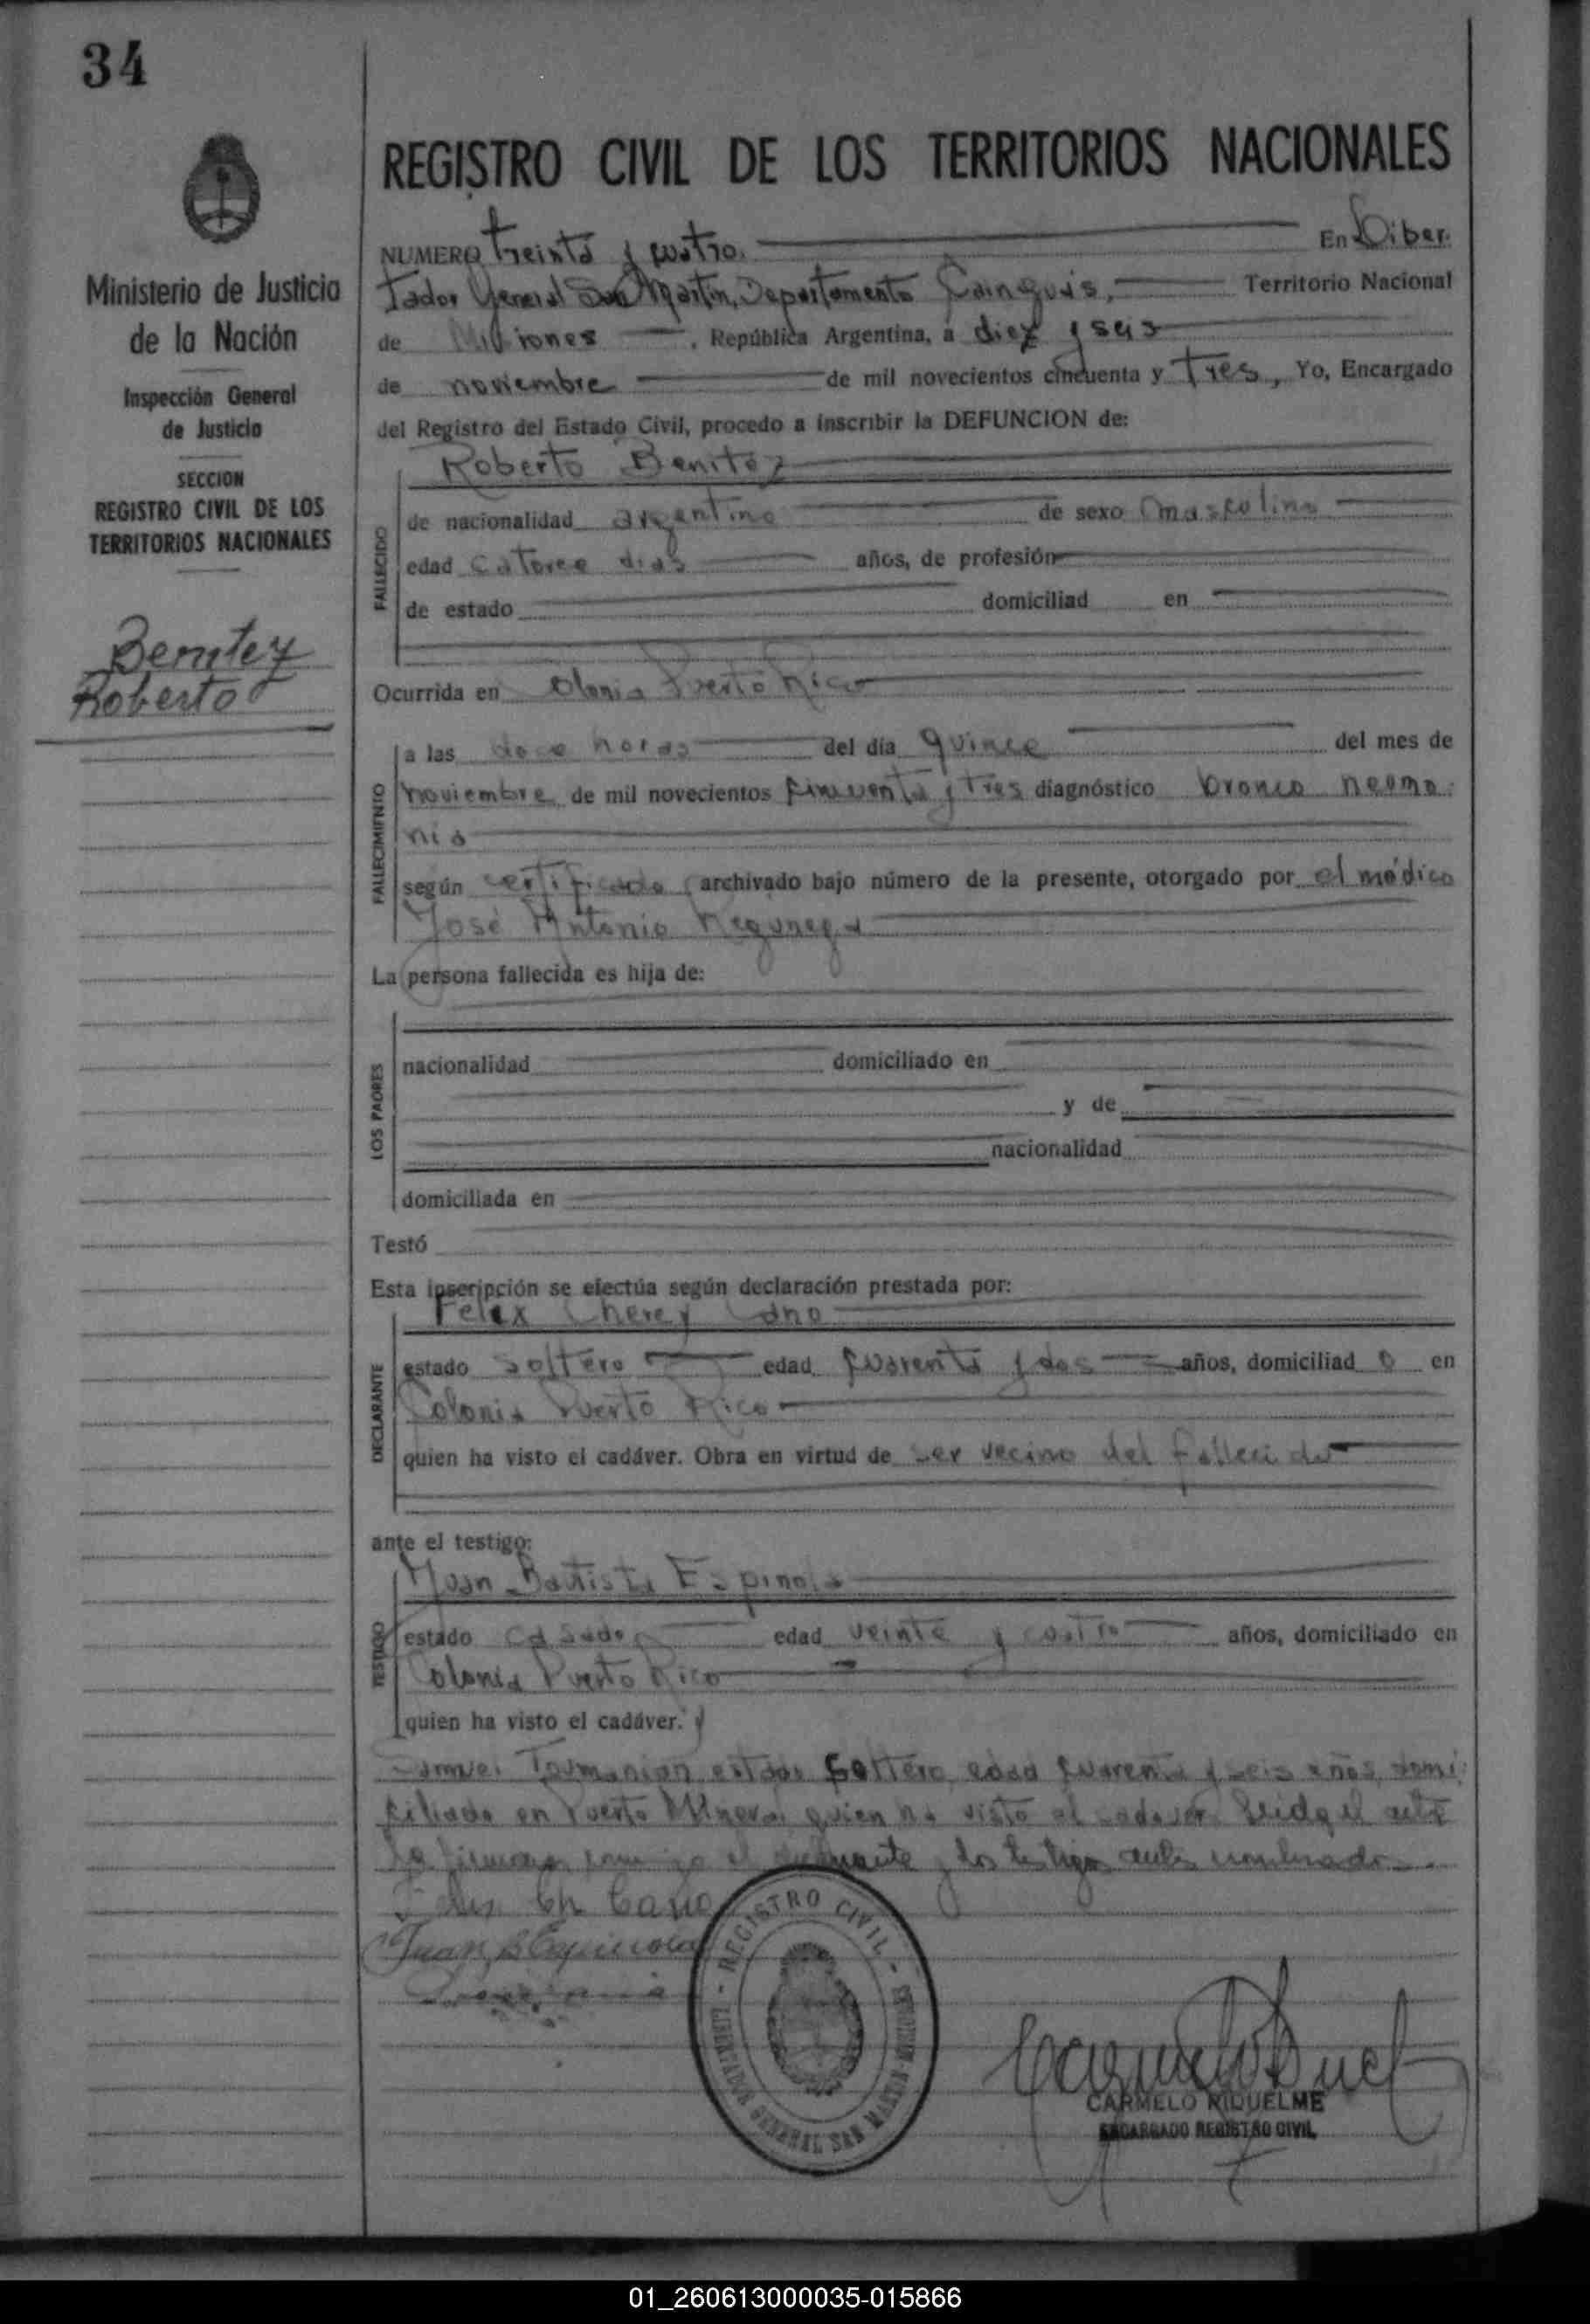 34
Ministerio de Justicia
de la Nación
Inspección General
de Justicia
SECCION
REGISTRO CIVIL DE LOS
TERRITORIOS NACIONALES
Benitez
Roberto
REGISTRO CIVIL DE LOS TERRITORIOS NACIONALES
NUMERO treinta y cuatro. En Liber
tador General San Martín, Departamento Cainguás, Territorio Nacional
de Misiones, República Argentina, a diez y seis
de noviembre de mil novecientos cincuenta y tres, Yo, Encargado
del Registro del Estado Civil, procedo a inscribir la DEFUNCION de:
Roberto Benitez
FALLECIDO
de nacionalidad argentino de sexo masculino
edad catorce dias años, de profesión
de estado domiciliad en
Ocurrida en Colonia Puerto Rico
FALLECIMIENTO
a las doce horas del día quince del mes de
noviembre de mil novecientos cincuenta y tres diagnóstico bronco neumo
nia
según certificado archivado bajo número de la presente, otorgado por el médico
José Antonio
La persona fallecida es hija de:
LOS PADRES
nacionalidad domiciliado en
y de
nacionalidad
domiciliada en
Testó
Esta inscripción se efectúa según declaración prestada por:
Felix Cano
DECLARANTE
estado soltero edad cuarenta y dos años, domiciliad o en
Colonia Puerto Rico
quien ha visto el cadáver. Obra en virtud de ser vecino del fallecido
ante el testigo:
Juan Bautista Espinola
TESTIGO
estado casado edad veinte y cuatro años, domiciliado en
Colonia Puerto Rico
quien ha visto el cadáver. y
Samuel estado soltero edad cuarenta y seis años domi
ciliado en Puerto Mineral quien ha visto el cadaver. Leida el acta
la firman conmigo el declarante y los testigos antes nombrados.
Felix Ch Cano
Juan B Espinola
REGISTRO CIVIL
LIBERTADOR GENERAL SAN MARTIN MISIONES
CARMELO RIQUELME
ENCARGADO REGISTRO CIVIL
01_260613000035-015866